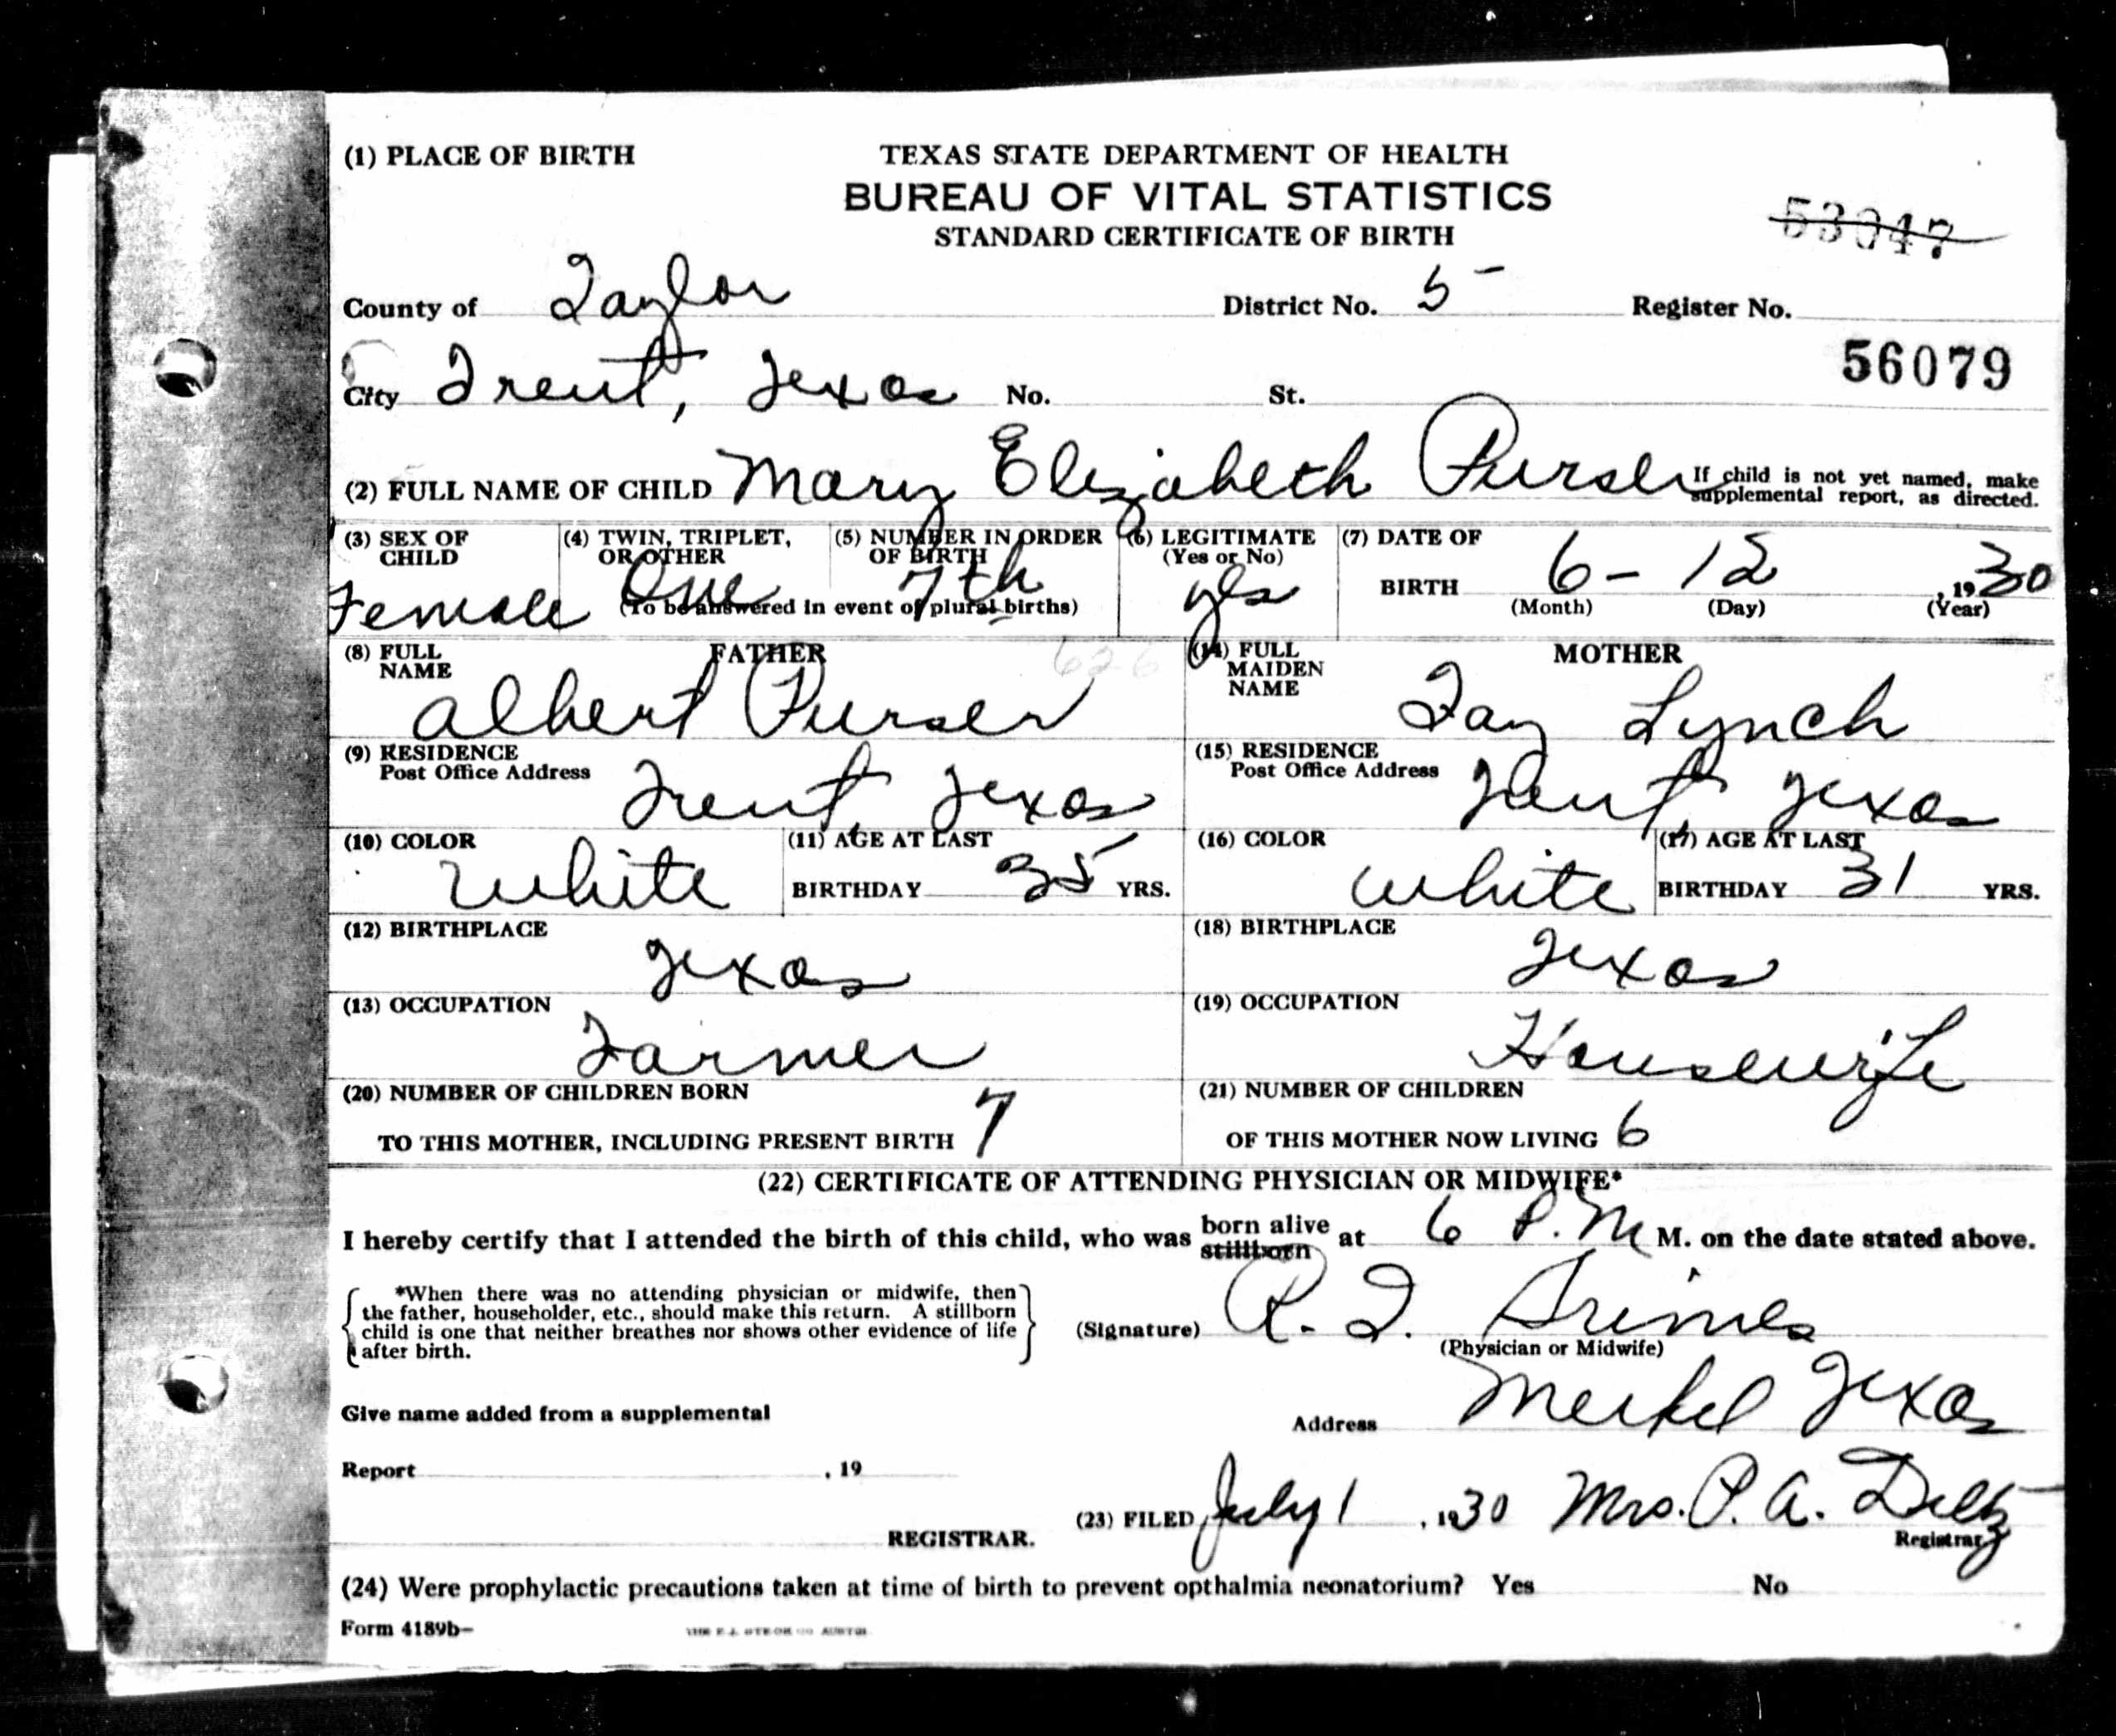 (1) PLACE OF BIRTH
TEXAS STATE DEPARTMENT OF HEALTH
BUREAU OF VITAL STATISTICS
STANDARD CERTIFICATE OF BIRTH
53047
County of Taylor District No. 5 Register No.
56079
City Trent, Texas No. St.
(2) FULL NAME OF CHILD Mary Elizabeth Purser If child is not yet named, make supplemental report, as directed.
(3) SEX OF CHILD Female
(4) TWIN, TRIPLET, OR OTHER One
(5) NUMBER IN ORDER OF BIRTH 7th
(To be answered in event of plural births)
(6) LEGITIMATE (Yes or No) yes
(7) DATE OF BIRTH 6-12, 1930
(Month) (Day) (Year)
FATHER
(8) FULL NAME Albert Purser
626
MOTHER
(14) FULL MAIDEN NAME Fay Lynch
(9) RESIDENCE Post Office Address Trent, Texas
(15) RESIDENCE Post Office Address Trent, Texas
(10) COLOR White
(11) AGE AT LAST BIRTHDAY 35 YRS.
(16) COLOR White
(17) AGE AT LAST BIRTHDAY 31 YRS.
(12) BIRTHPLACE Texas
(18) BIRTHPLACE Texas
(13) OCCUPATION Farmer
(19) OCCUPATION Housewife
(20) NUMBER OF CHILDREN BORN
TO THIS MOTHER, INCLUDING PRESENT BIRTH 7
(21) NUMBER OF CHILDREN
OF THIS MOTHER NOW LIVING 6
(22) CERTIFICATE OF ATTENDING PHYSICIAN OR MIDWIFE*
I hereby certify that I attended the birth of this child, who was born alive stillborn at 6 P.M M. on the date stated above.
*When there was no attending physician or midwife, then
the father, householder, etc., should make this return. A stillborn
child is one that neither breathes nor shows other evidence of life
after birth.
(Signature) R. I. Grimes
(Physician or Midwife)
Give name added from a supplemental
Address Merkel Texas
Report , 19
(23) FILED July 1, 1930 Mrs. P. A. Diltz
REGISTRAR.
Registrar
(24) Were prophylactic precautions taken at time of birth to prevent opthalmia neonatorium? Yes No
Form 4189b-